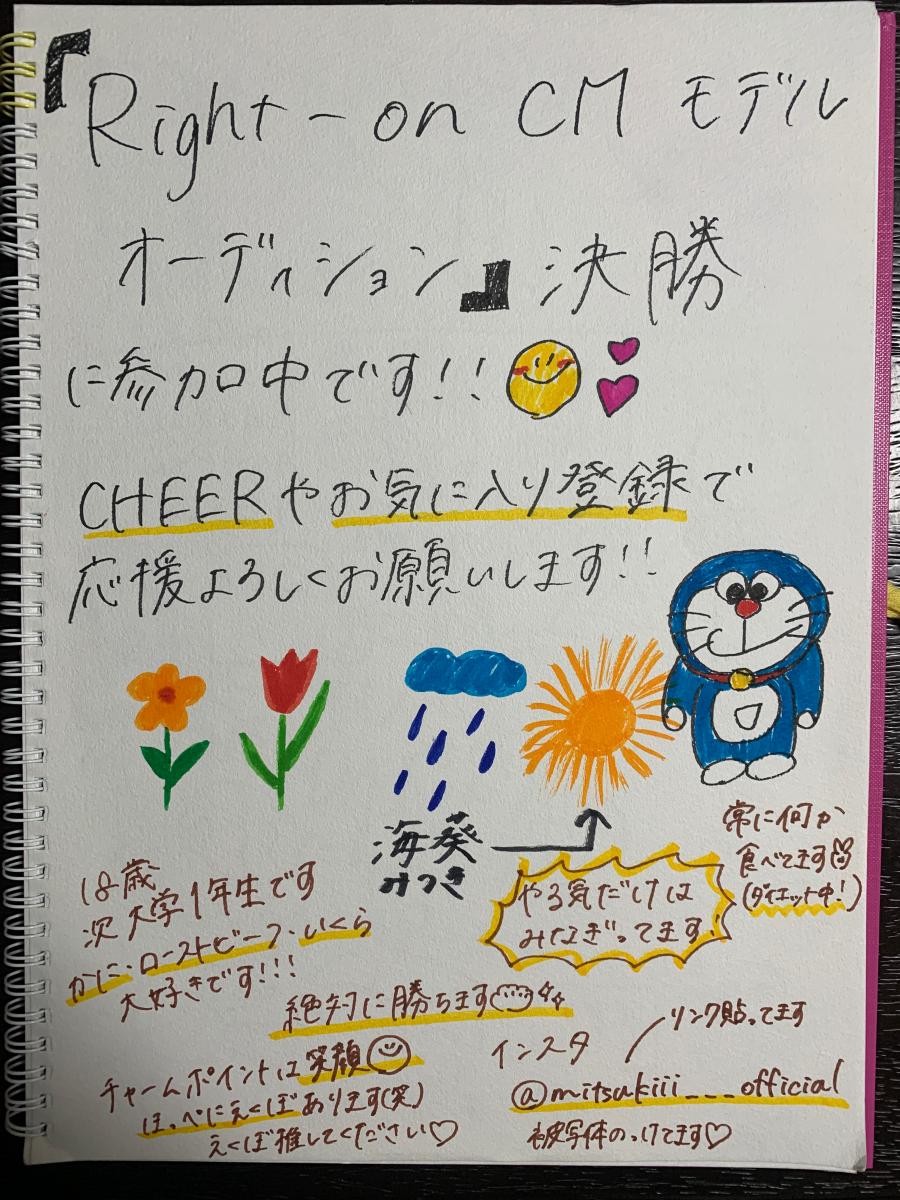 『Right-on CM モデル
オーディション』決勝
に参加中です!!
CHEERやお気に入り登録で
応援よろしくお願いします!!
海葵
みつき
18歳
次大学1年生です
かに・ローストビーフ・いくら
大好きです!!!
やる気だけは
みなぎってます!
常に何か
食べてます
(ダイエット中!)
絶対に勝ちます
チャームポイントは笑顔
ほっぺにえくぼあります(笑)
えくぼ推してください♡
インスタ
リンク貼ってます
@mitsukiii___official
被写体のっけてます♡